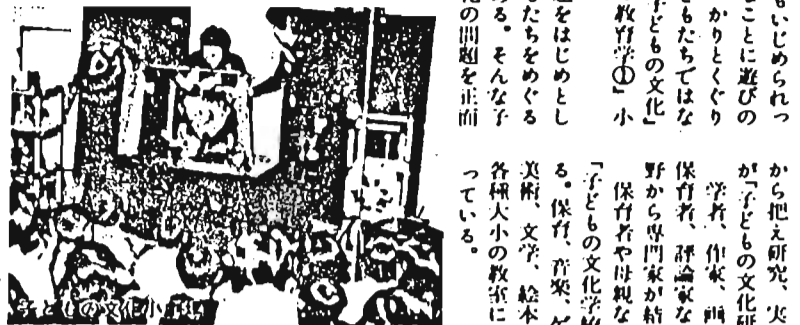 もいじめられっ
ことに遊びの
かりとくぐり
どもたちではな
子どもの文化」
教育学①』小
題をはじめとし
もたちをめぐる
る。そんな子
化の問題を正面
から把え研究、実
が「子どもの文化研
学者、作家、画
保育者、評論家な
野から専門家が結
保育者や母親な
「子どもの文化学校
る。保育、音楽、
美術、文学、絵本
各種大小の教室に
っている。
子どもの文化